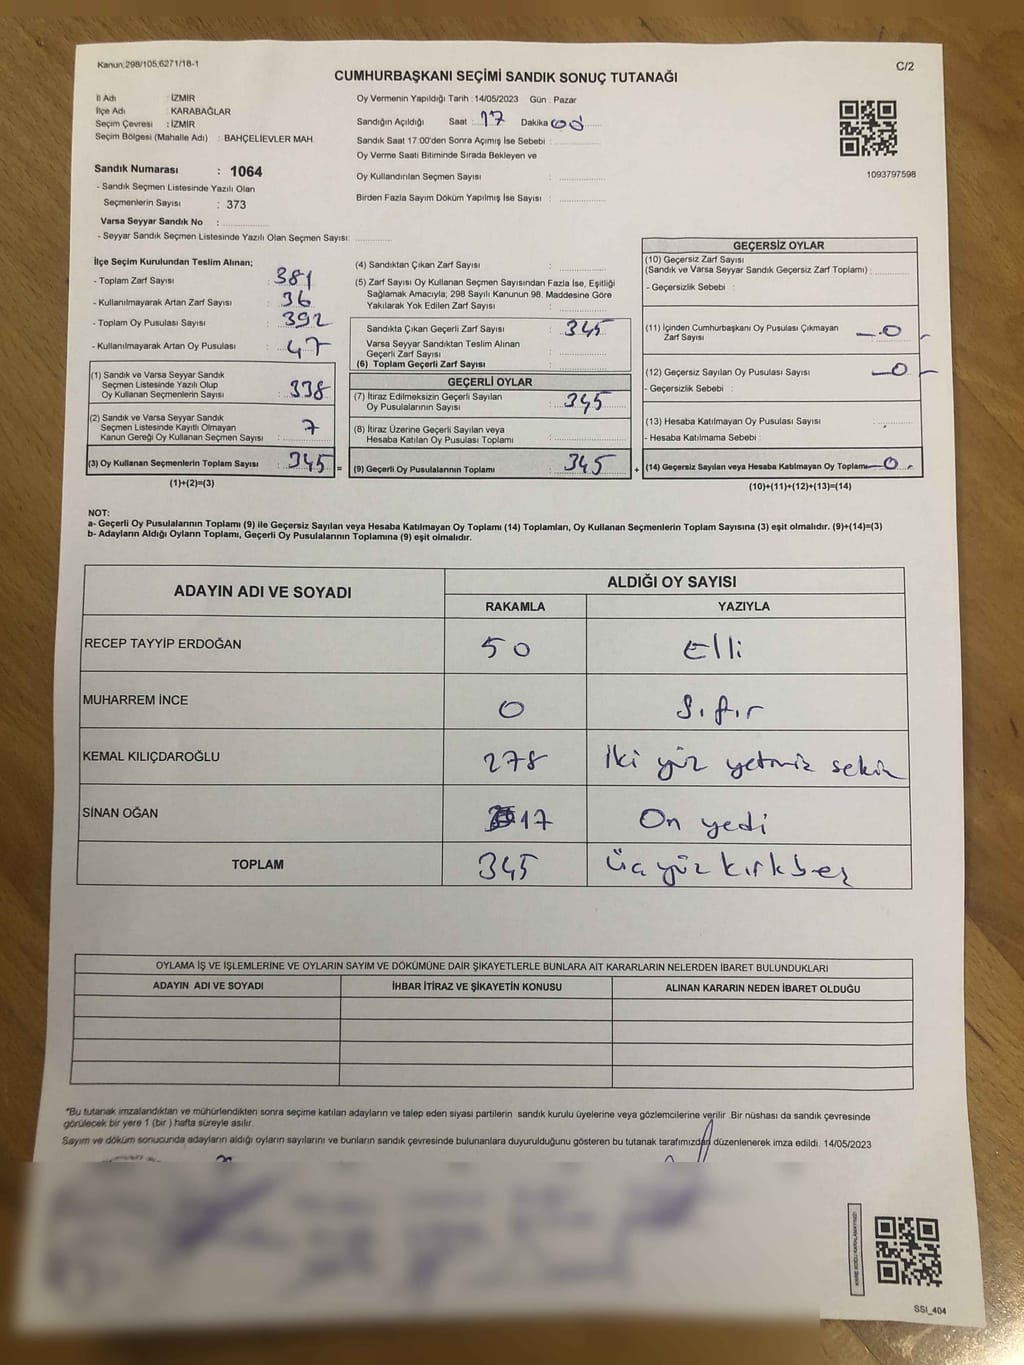 Kanun:298/105;6271/18-1
C/2
CUMHURBAŞKANI SEÇİMİ SANDIK SONUÇ TUTANAĞI
İl Adı : İZMİR
İlçe Adı : KARABAĞLAR
Seçim Çevresi : İZMİR
Seçim Bölgesi (Mahalle Adı) : BAHÇELİEVLER MAH.
Oy Vermenin Yapıldığı Tarih : 14/05/2023 Gün : Pazar
Sandığın Açıldığı Saat : 17 Dakika 00
Sandık Saat 17:00'den Sonra Açımış İse Sebebi :
Oy Verme Saati Bitiminde Sırada Bekleyen ve
Oy Kullandırılan Seçmen Sayısı :
Birden Fazla Sayım Döküm Yapılmış İse Sayısı :
1093797598
Sandık Numarası : 1064
- Sandık Seçmen Listesinde Yazılı Olan
Seçmenlerin Sayısı : 373
Varsa Seyyar Sandık No :
- Seyyar Sandık Seçmen Listesinde Yazılı Olan Seçmen Sayısı:
İlçe Seçim Kurulundan Teslim Alınan;
- Toplam Zarf Sayısı : 381
- Kullanılmayarak Artan Zarf Sayısı : 36
- Toplam Oy Pusulası Sayısı : 392
- Kullanılmayarak Artan Oy Pusulası : 47
(1) Sandık ve Varsa Seyyar Sandık
Seçmen Listesinde Yazılı Olup
Oy Kullanan Seçmenlerin Sayısı : 338
(2) Sandık ve Varsa Seyyar Sandık
Seçmen Listesinde Kayıtlı Olmayan
Kanun Gereği Oy Kullanan Seçmen Sayısı : 7
(3) Oy Kullanan Seçmenlerin Toplam Sayısı : 345 =
(1)+(2)=(3)
(4) Sandıktan Çıkan Zarf Sayısı :
(5) Zarf Sayısı Oy Kullanan Seçmen Sayısından Fazla İse, Eşitliği
Sağlamak Amacıyla; 298 Sayılı Kanunun 98. Maddesine Göre
Yakılarak Yok Edilen Zarf Sayısı :
Sandıkta Çıkan Geçerli Zarf Sayısı : 345
Varsa Seyyar Sandıktan Teslim Alınan
Geçerli Zarf Sayısı :
(6) Toplam Geçerli Zarf Sayısı :
GEÇERLİ OYLAR
(7) İtiraz Edilmeksizin Geçerli Sayılan
Oy Pusulalarının Sayısı : 345
(8) İtiraz Üzerine Geçerli Sayılan veya
Hesaba Katılan Oy Pusulası Toplamı :
(9) Geçerli Oy Pusulalarının Toplamı : 345 +
GEÇERSİZ OYLAR
(10) Geçersiz Zarf Sayısı
(Sandık ve Varsa Seyyar Sandık Geçersiz Zarf Toplamı) :
- Geçersizlik Sebebi :
(11) İçinden Cumhurbaşkanı Oy Pusulası Çıkmayan
Zarf Sayısı : -0-
(12) Geçersiz Sayılan Oy Pusulası Sayısı : -0-
- Geçersizlik Sebebi :
(13) Hesaba Katılmayan Oy Pusulası Sayısı :
- Hesaba Katılmama Sebebi :
(14) Geçersiz Sayılan veya Hesaba Katılmayan Oy Toplamı -0-
(10)+(11)+(12)+(13)=(14)
NOT:
a- Geçerli Oy Pusulalarının Toplamı (9) ile Geçersiz Sayılan veya Hesaba Katılmayan Oy Toplamı (14) Toplamları, Oy Kullanan Seçmenlerin Toplam Sayısına (3) eşit olmalıdır. (9)+(14)=(3)
b- Adayların Aldığı Oyların Toplamı, Geçerli Oy Pusulalarının Toplamına (9) eşit olmalıdır.
ADAYIN ADI VE SOYADI ALDIĞI OY SAYISI
RAKAMLA YAZIYLA
RECEP TAYYİP ERDOĞAN 50 Elli
MUHARREM İNCE 0 Sıfır
KEMAL KILIÇDAROĞLU 278 İki yüz yetmiş sekiz
SİNAN OĞAN 17 On yedi
TOPLAM 345 Üç yüz kırk beş
OYLAMA İŞ VE İŞLEMLERİNE VE OYLARIN SAYIM VE DÖKÜMÜNE DAİR ŞİKAYETLERLE BUNLARA AİT KARARLARIN NELERDEN İBARET BULUNDUKLARI
ADAYIN ADI VE SOYADI İHBAR İTİRAZ VE ŞİKAYETİN KONUSU ALINAN KARARIN NEDEN İBARET OLDUĞU
"Bu tutanak imzalandıktan ve mühürlendikten sonra seçime katılan adayların ve talep eden siyasi partilerin sandık kurulu üyelerine veya gözlemcilerine verilir. Bir nüshası da sandık çevresinde
görülecek bir yere 1 (bir ) hafta süreyle asılır.
Sayım ve döküm sonucunda adayların aldığı oyların sayılarını ve bunların sandık çevresinde bulunanlara duyurulduğunu gösteren bu tutanak tarafımızdan düzenlenerek imza edildi. 14/05/2023
SSI_404